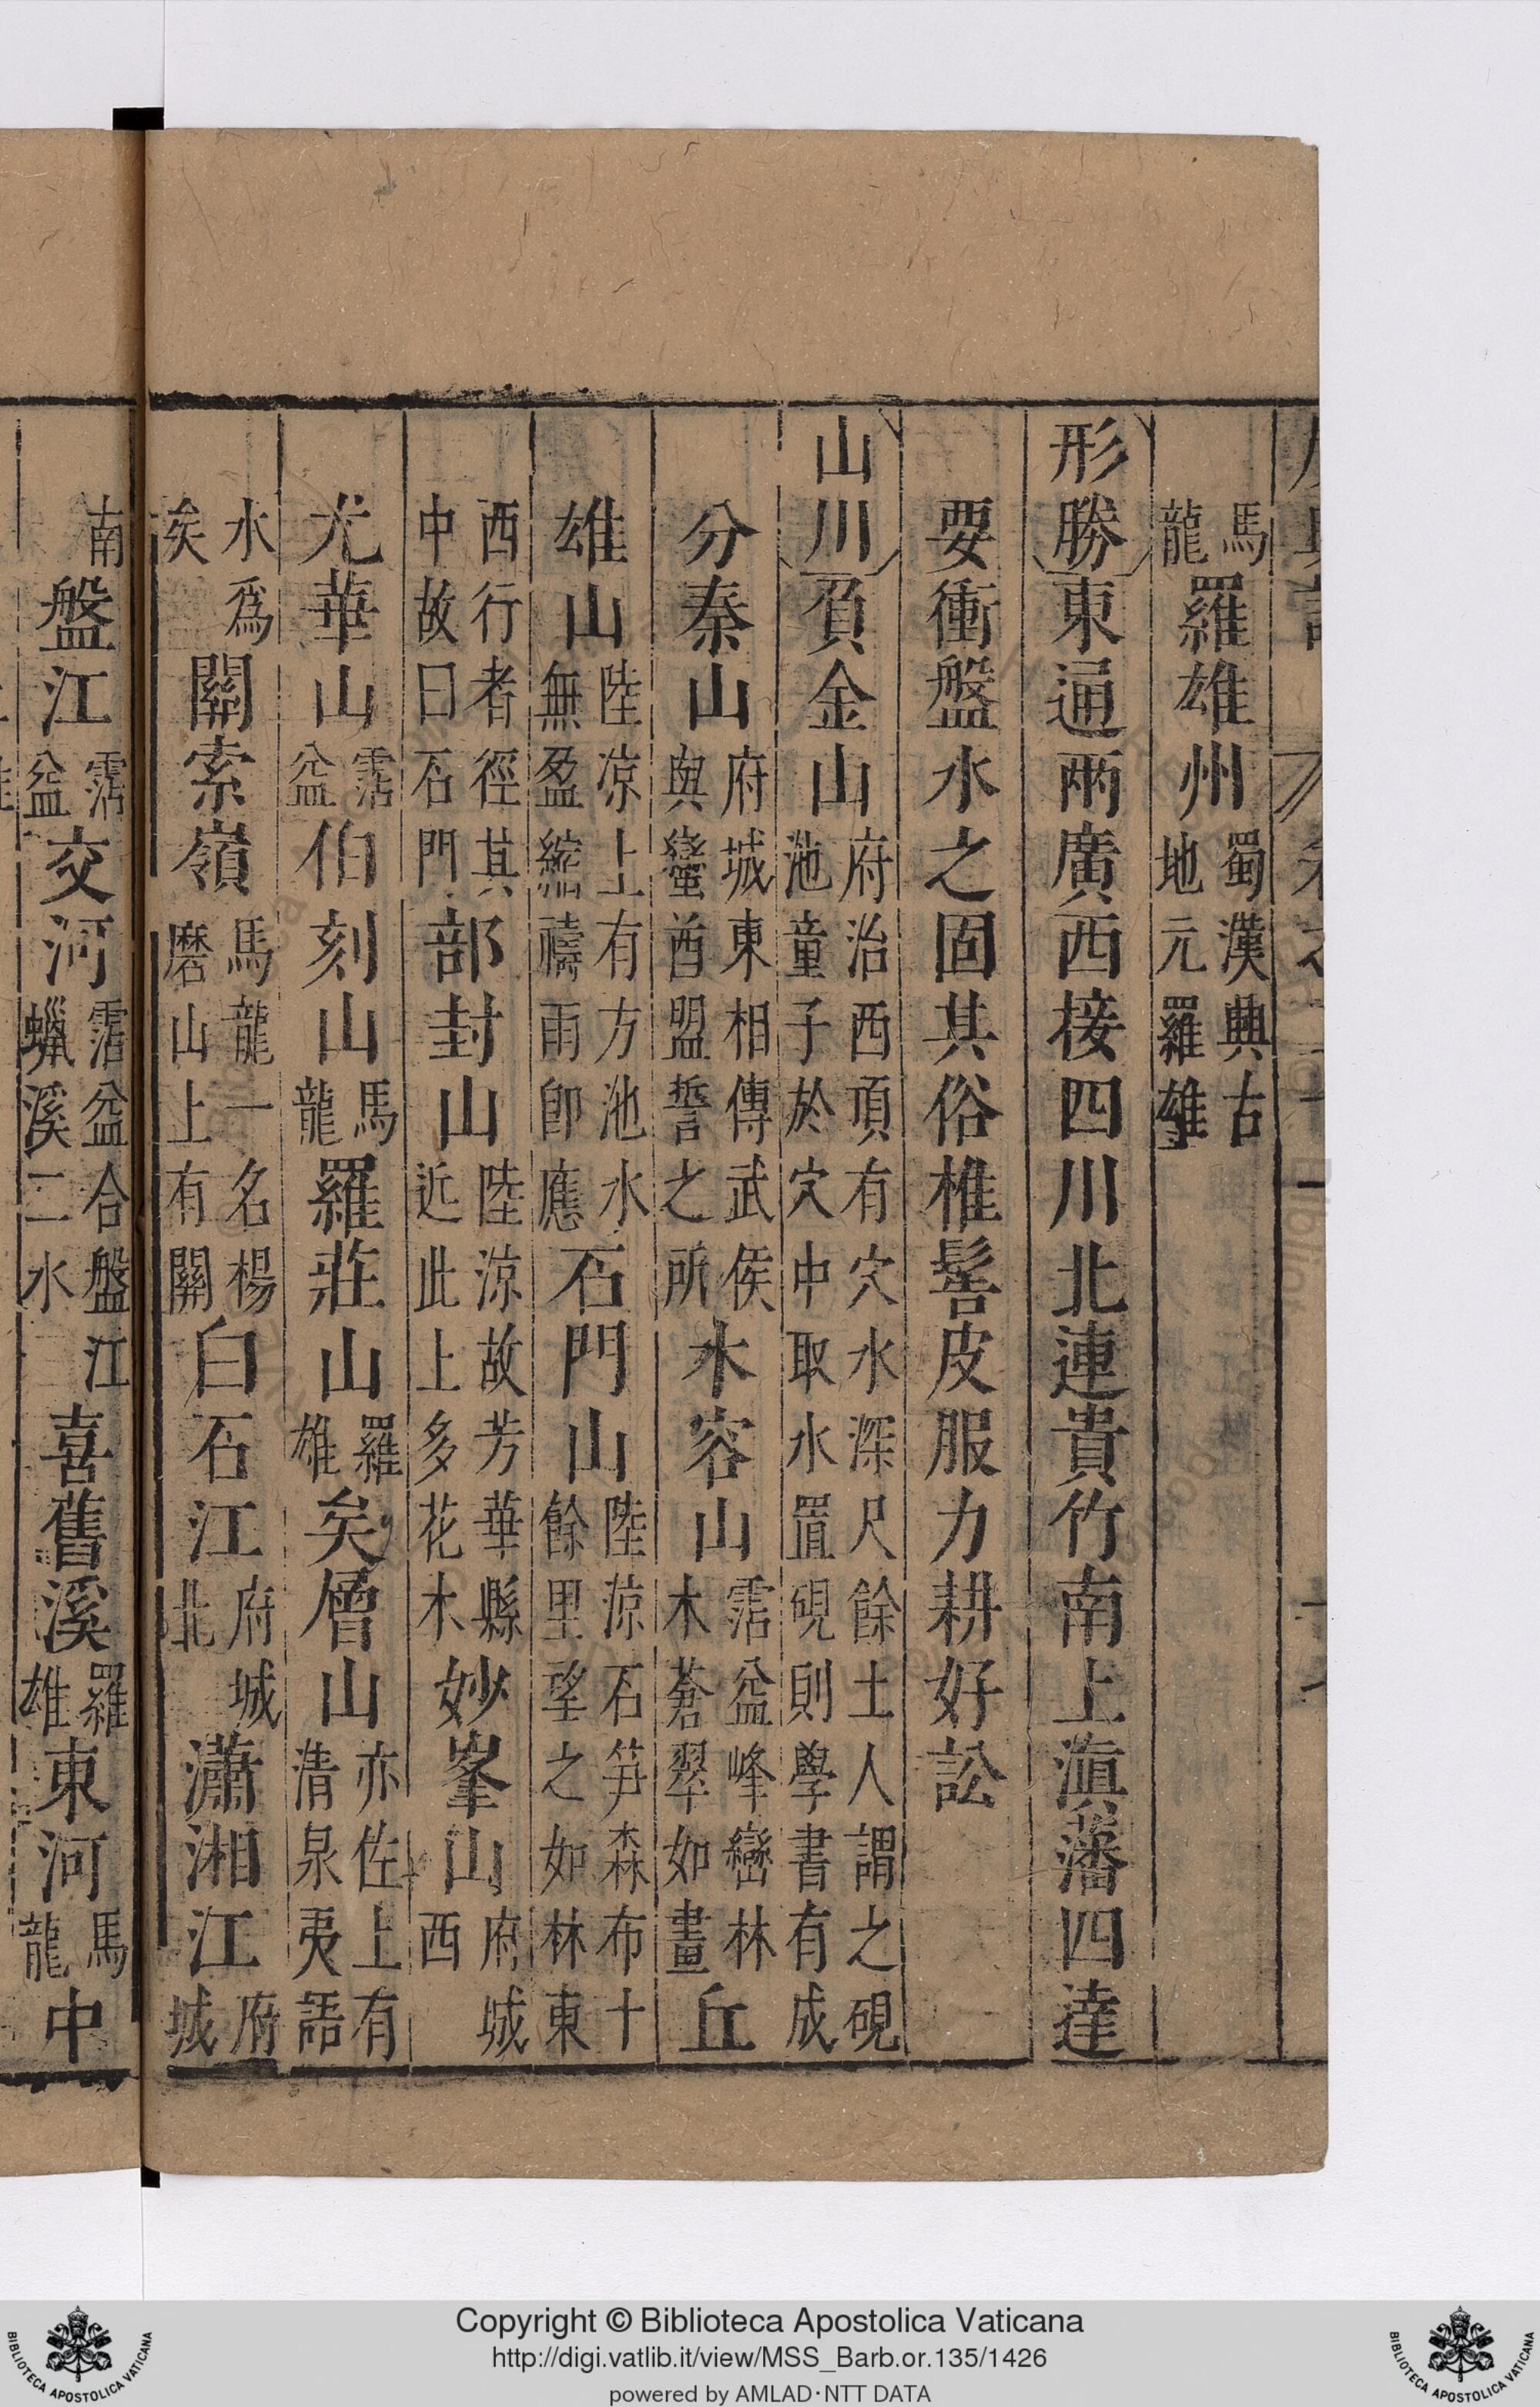 馬龍羅雄州蜀漢興古地元羅雄
形勝東通兩廣西接四川北連貴竹南上滇藩四達
要衝盤水之固其俗椎髻皮服力耕好訟
山川頁金山府治西頂有穴水深尺餘土人謂之硯池童子於穴中取水置硯則學書有成
分秦山府城東相傳武侯與蠻酋盟誓之所木容山霑益峰巒林木蒼翠如畫丘
雄山陸凉上有方池水無盈縮禱雨卽應石門山陸涼石笋森布十餘里望之如林東
西行者徑其中故曰石門部封山陸涼故芳華縣近此上多花木妙峯山府城西
尤華山霑益伯刻山馬龍羅莊山羅雄矣層山亦佐上有清泉夷語
水爲矣關索嶺馬龍一名楊磨山上有關白石江府城北瀟湘江府城
南盤江霑益交河霑益合盤江蠟溪二水喜舊溪羅雄東河馬龍中
Copyright © Biblioteca Apostolica Vaticana
http://digi.vatlib.it/view/MSS_Barb.or.135/1426
powered by AMLAD·NTT DATA
BIBLIOTECA APOSTOLICA VATICANA
BIBLIOTECA APOSTOLICA VATICANA